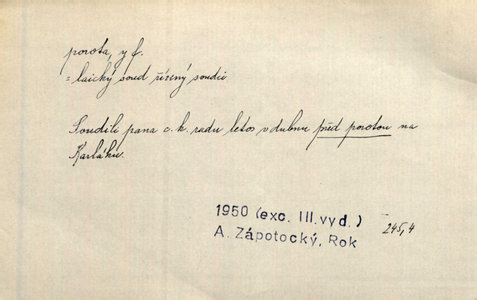 porota, y f.
= laický soud řízený soudci
Soudili pana c. k. radu letos v dubnu před porotou na
Karláku.
1950 (exc. III. vyd.)
A. Zápotocký, Rok
245,4